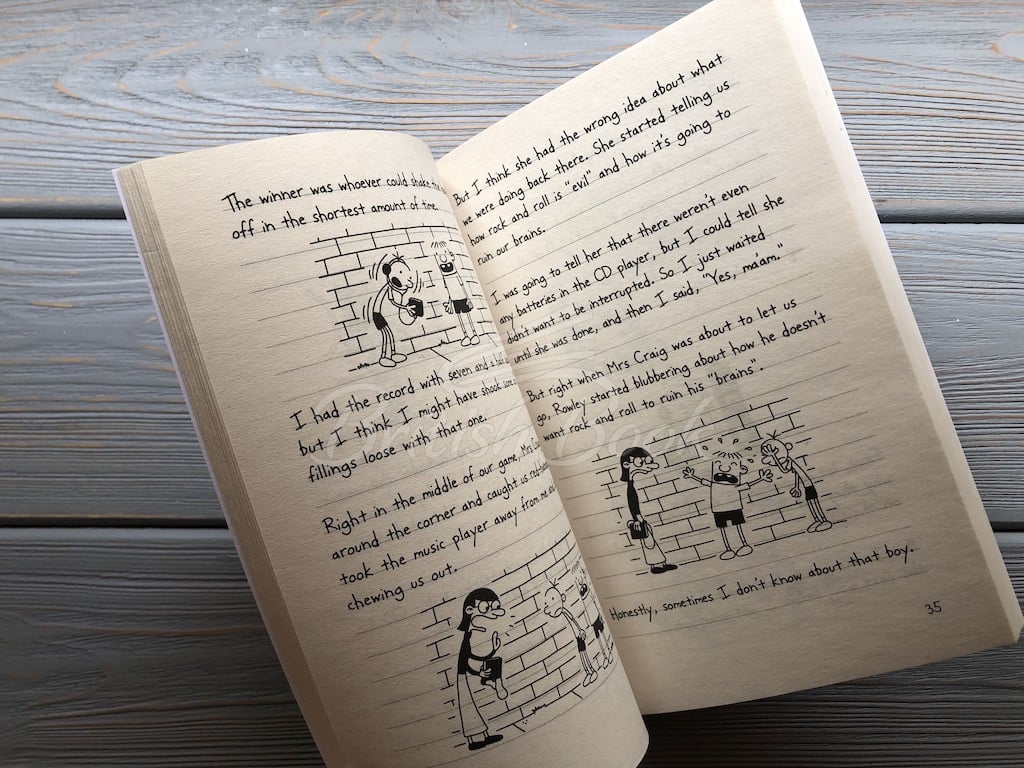 The winner was whoever could shake the
off in the shortest amount of time.
I had the record with seven and a half
but I think I might have shook some
fillings loose with that one.
Right in the middle of our game, Mrs
around the corner and caught us
took the music player away from me
chewing us out.
But I think she had the wrong idea about what
we were doing back there. She started telling us
how rock and roll is "evil" and how it's going to
ruin our brains.
I was going to tell her that there weren't even
any batteries in the CD player, but I could tell she
didn't want to be interrupted. So I just waited
until she was done, and then I said, "Yes, ma'am."
But right when Mrs Craig was about to let us
go, Rowley started blubbering about how he doesn't
want rock and roll to ruin his "brains".
Honestly, sometimes I don't know about that boy.
35
British Book